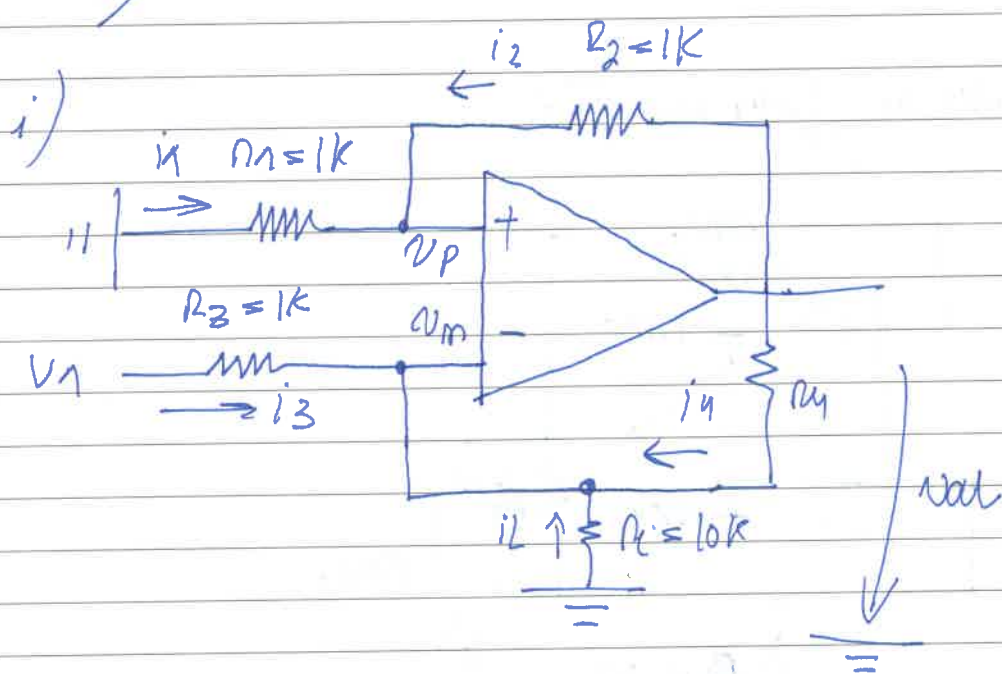 i2 R2=1K
i)
i1 R1=1K
+
vp
R3=1K
vn -
V1
i3
i4 R4
iL RL=10K